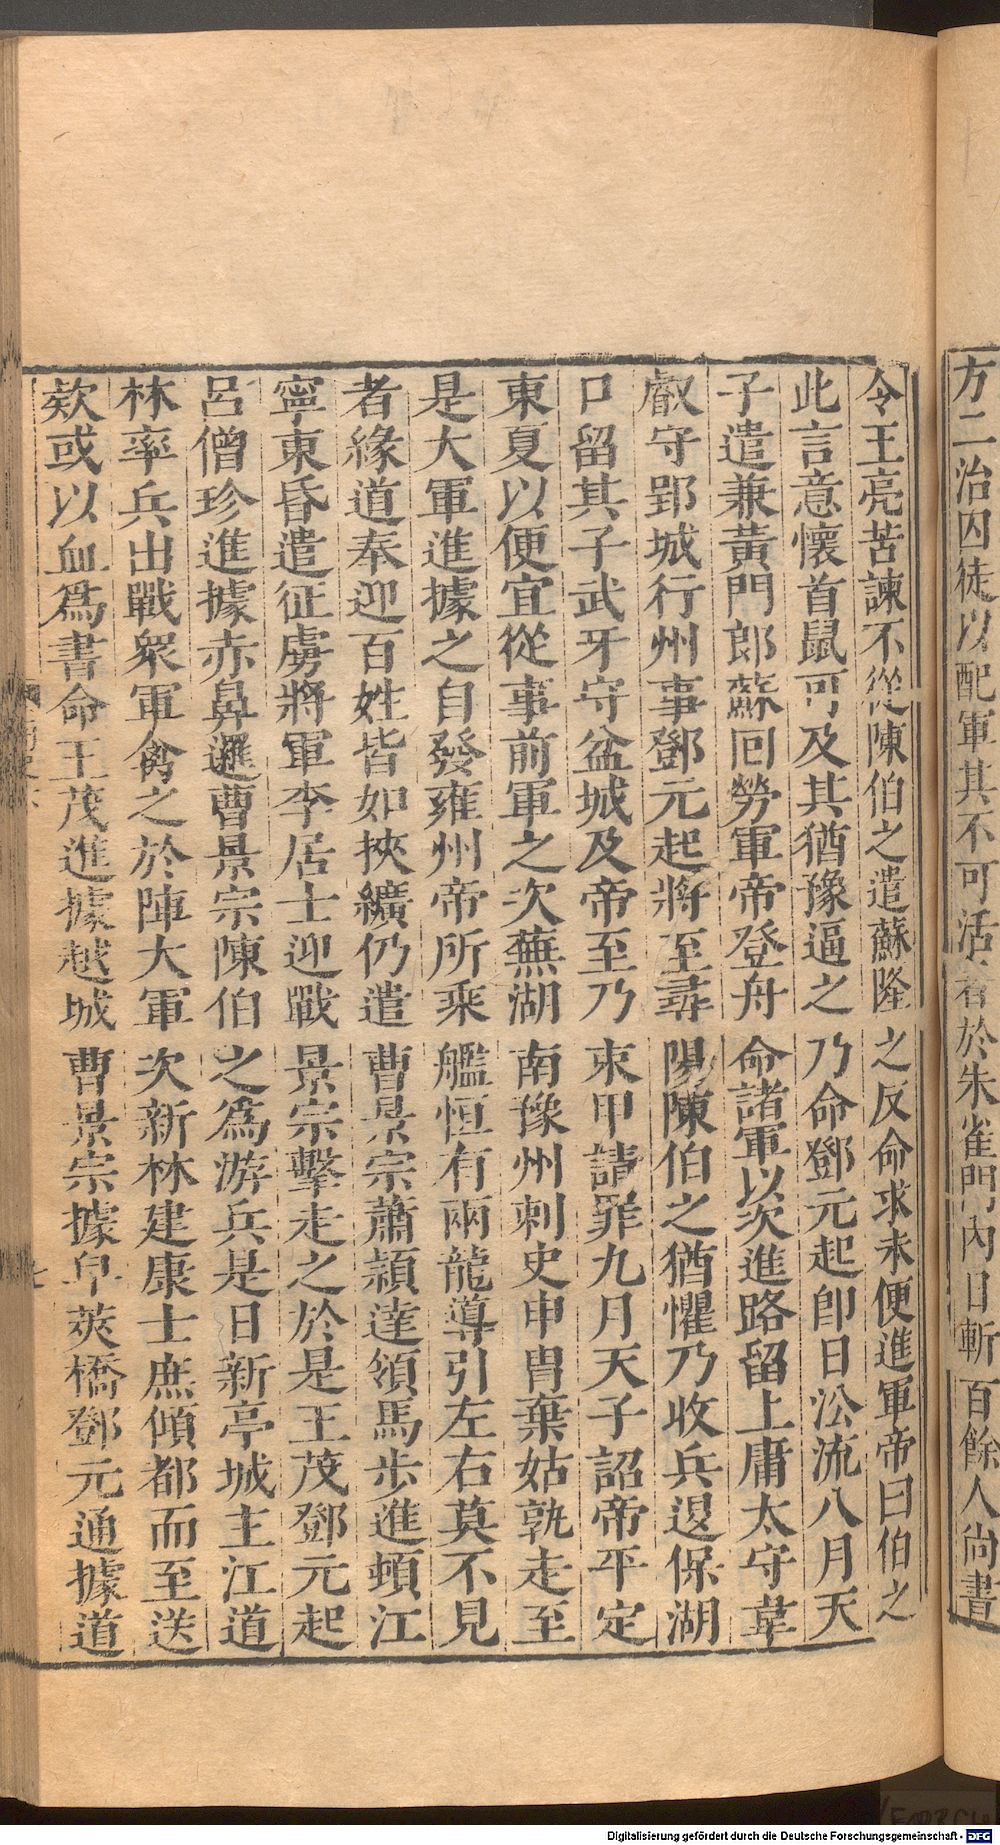 方二治囚徒以配軍其不可活者於朱雀門內日斬百餘人尚書
令王亮苦諫不從陳伯之遣蘇隆之反命求未便進軍帝曰伯之
此言意懷首鼠可及其猶豫逼之乃命鄧元起卽日㳂流八月天
子遣兼黃門郎蘇囘勞軍帝登舟命諸軍以次進路留上庸太守韋
叡守郢城行州事鄧元起將至尋陽陳伯之猶懼乃收兵退保湖
口留其子武牙守盆城及帝至乃束甲請罪九月天子詔帝平定
東夏以便宜從事前軍之次蕪湖南豫州刺史申冑棄姑孰走至
是大軍進據之自發雍州帝所乘艦恒有兩龍導引左右莫不見
者緣道奉迎百姓皆如挾纊仍遣曹景宗蕭頴達領馬步進頓江
寧東昏遣征虜將軍李居士迎戰景宗擊走之於是王茂鄧元起
呂僧珍進據赤鼻邏曹景宗陳伯之爲游兵是日新亭城主江道
林率兵出戰衆軍禽之於陣大軍次新林建康士庶傾都而至送
欵或以血爲書命王茂進據越城曹景宗據皁莢橋鄧元通據道
七
Digitalisierung gefördert durch die Deutsche Forschungsgemeinschaft - DFG